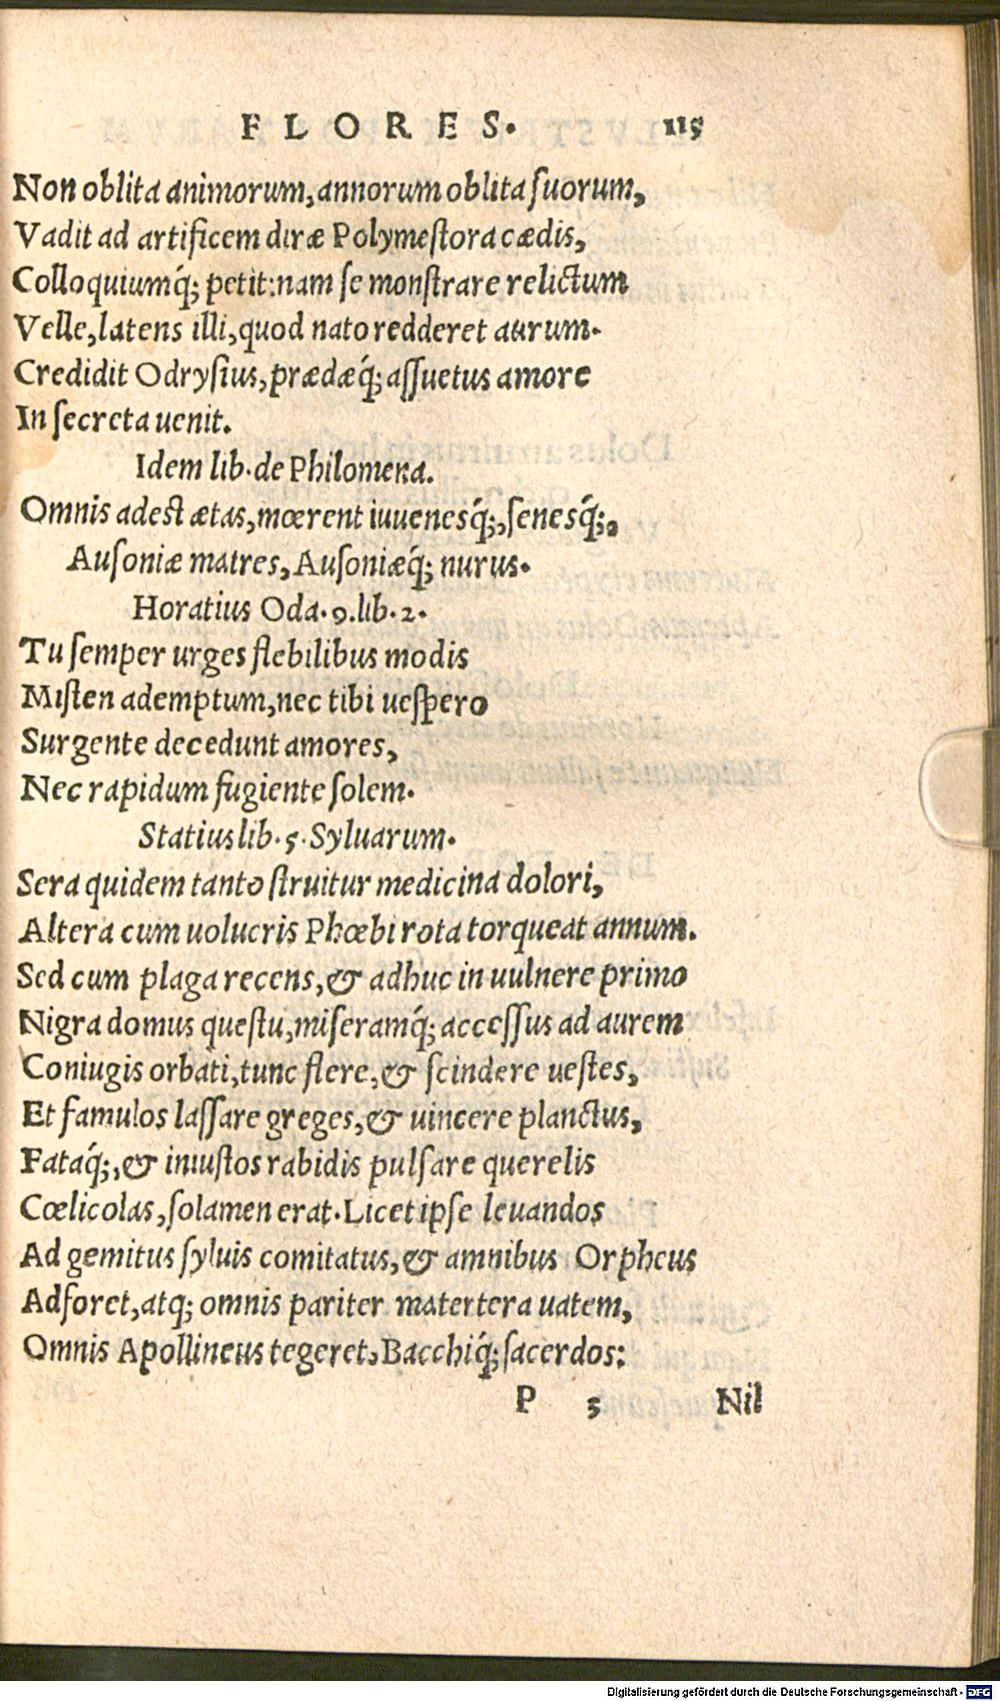 FLORES. 115
Non oblita animorum, annorum oblita ſuorum,
Vadit ad artificem diræ Polymeſtora cædis,
Colloquiumq́; petit: nam ſe monſtrare relictum
Velle, latens illi, quod nato redderet aurum.
Credidit Odryſius, prædæq́; aſſuetus amore
In ſecreta uenit.
Idem lib. de Philomena.
Omnis adest ætas, mœrent iuuenesq́;, ſenesq́;,
Auſoniæ matres, Auſoniæq́; nurus.
Horatius Oda. 9. lib. 2.
Tu ſemper urges flebilibus modis
Miſten ademptum, nec tibi ueſpero
Surgente decedunt amores,
Nec rapidum fugiente ſolem.
Statius lib. 5. Syluarum.
Sera quidem tanto ſtruitur medicina dolori,
Altera cum uolucris Phœbi rota torqueat annum.
Sed cum plaga recens, & adhuc in uulnere primo
Nigra domus queſtu, miſeramq́; acceſſus ad aurem
Coniugis orbati, tunc flere, & ſcindere ueſtes,
Et famulos laſſare greges, & uincere planctus,
Fataq́;, & iniuſtos rabidis pulſare querelis
Cœlicolas, ſolamen erat. Licet ipſe leuandos
Ad gemitus ſyluis comitatus, & amnibus Orpheus
Adforet, atq; omnis pariter matertera uatem,
Omnis Apollineus tegeret, Bacchiq́; ſacerdos:
P 5 Nil
Digitalisierung gefördert durch die Deutsche Forschungsgemeinschaft - DFG